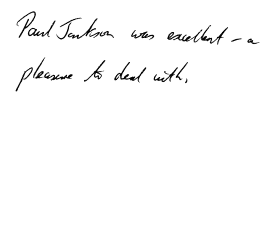 Paul Jackson was excellent - a
pleasure to deal with.